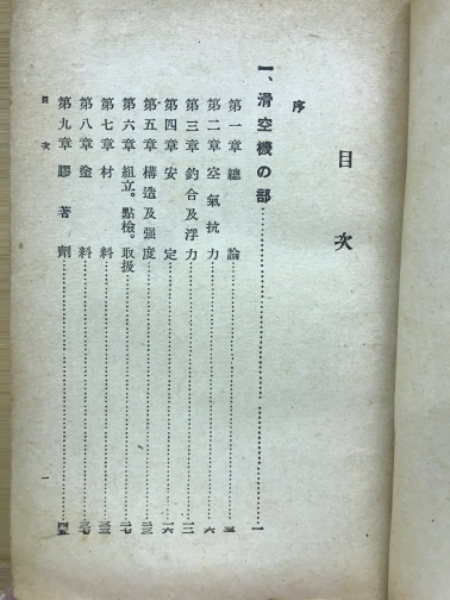 目次
序
一、滑空機の部…………一
第一章 總論…………三
第二章 空氣抗力…………六
第三章 釣合及浮力…………一二
第四章 安定…………一六
第五章 構造及强度…………
第六章 組立。點檢。取扱…………二七
第七章 材料…………
第八章 塗料…………三七
第九章 膠著劑…………四五
目次 一